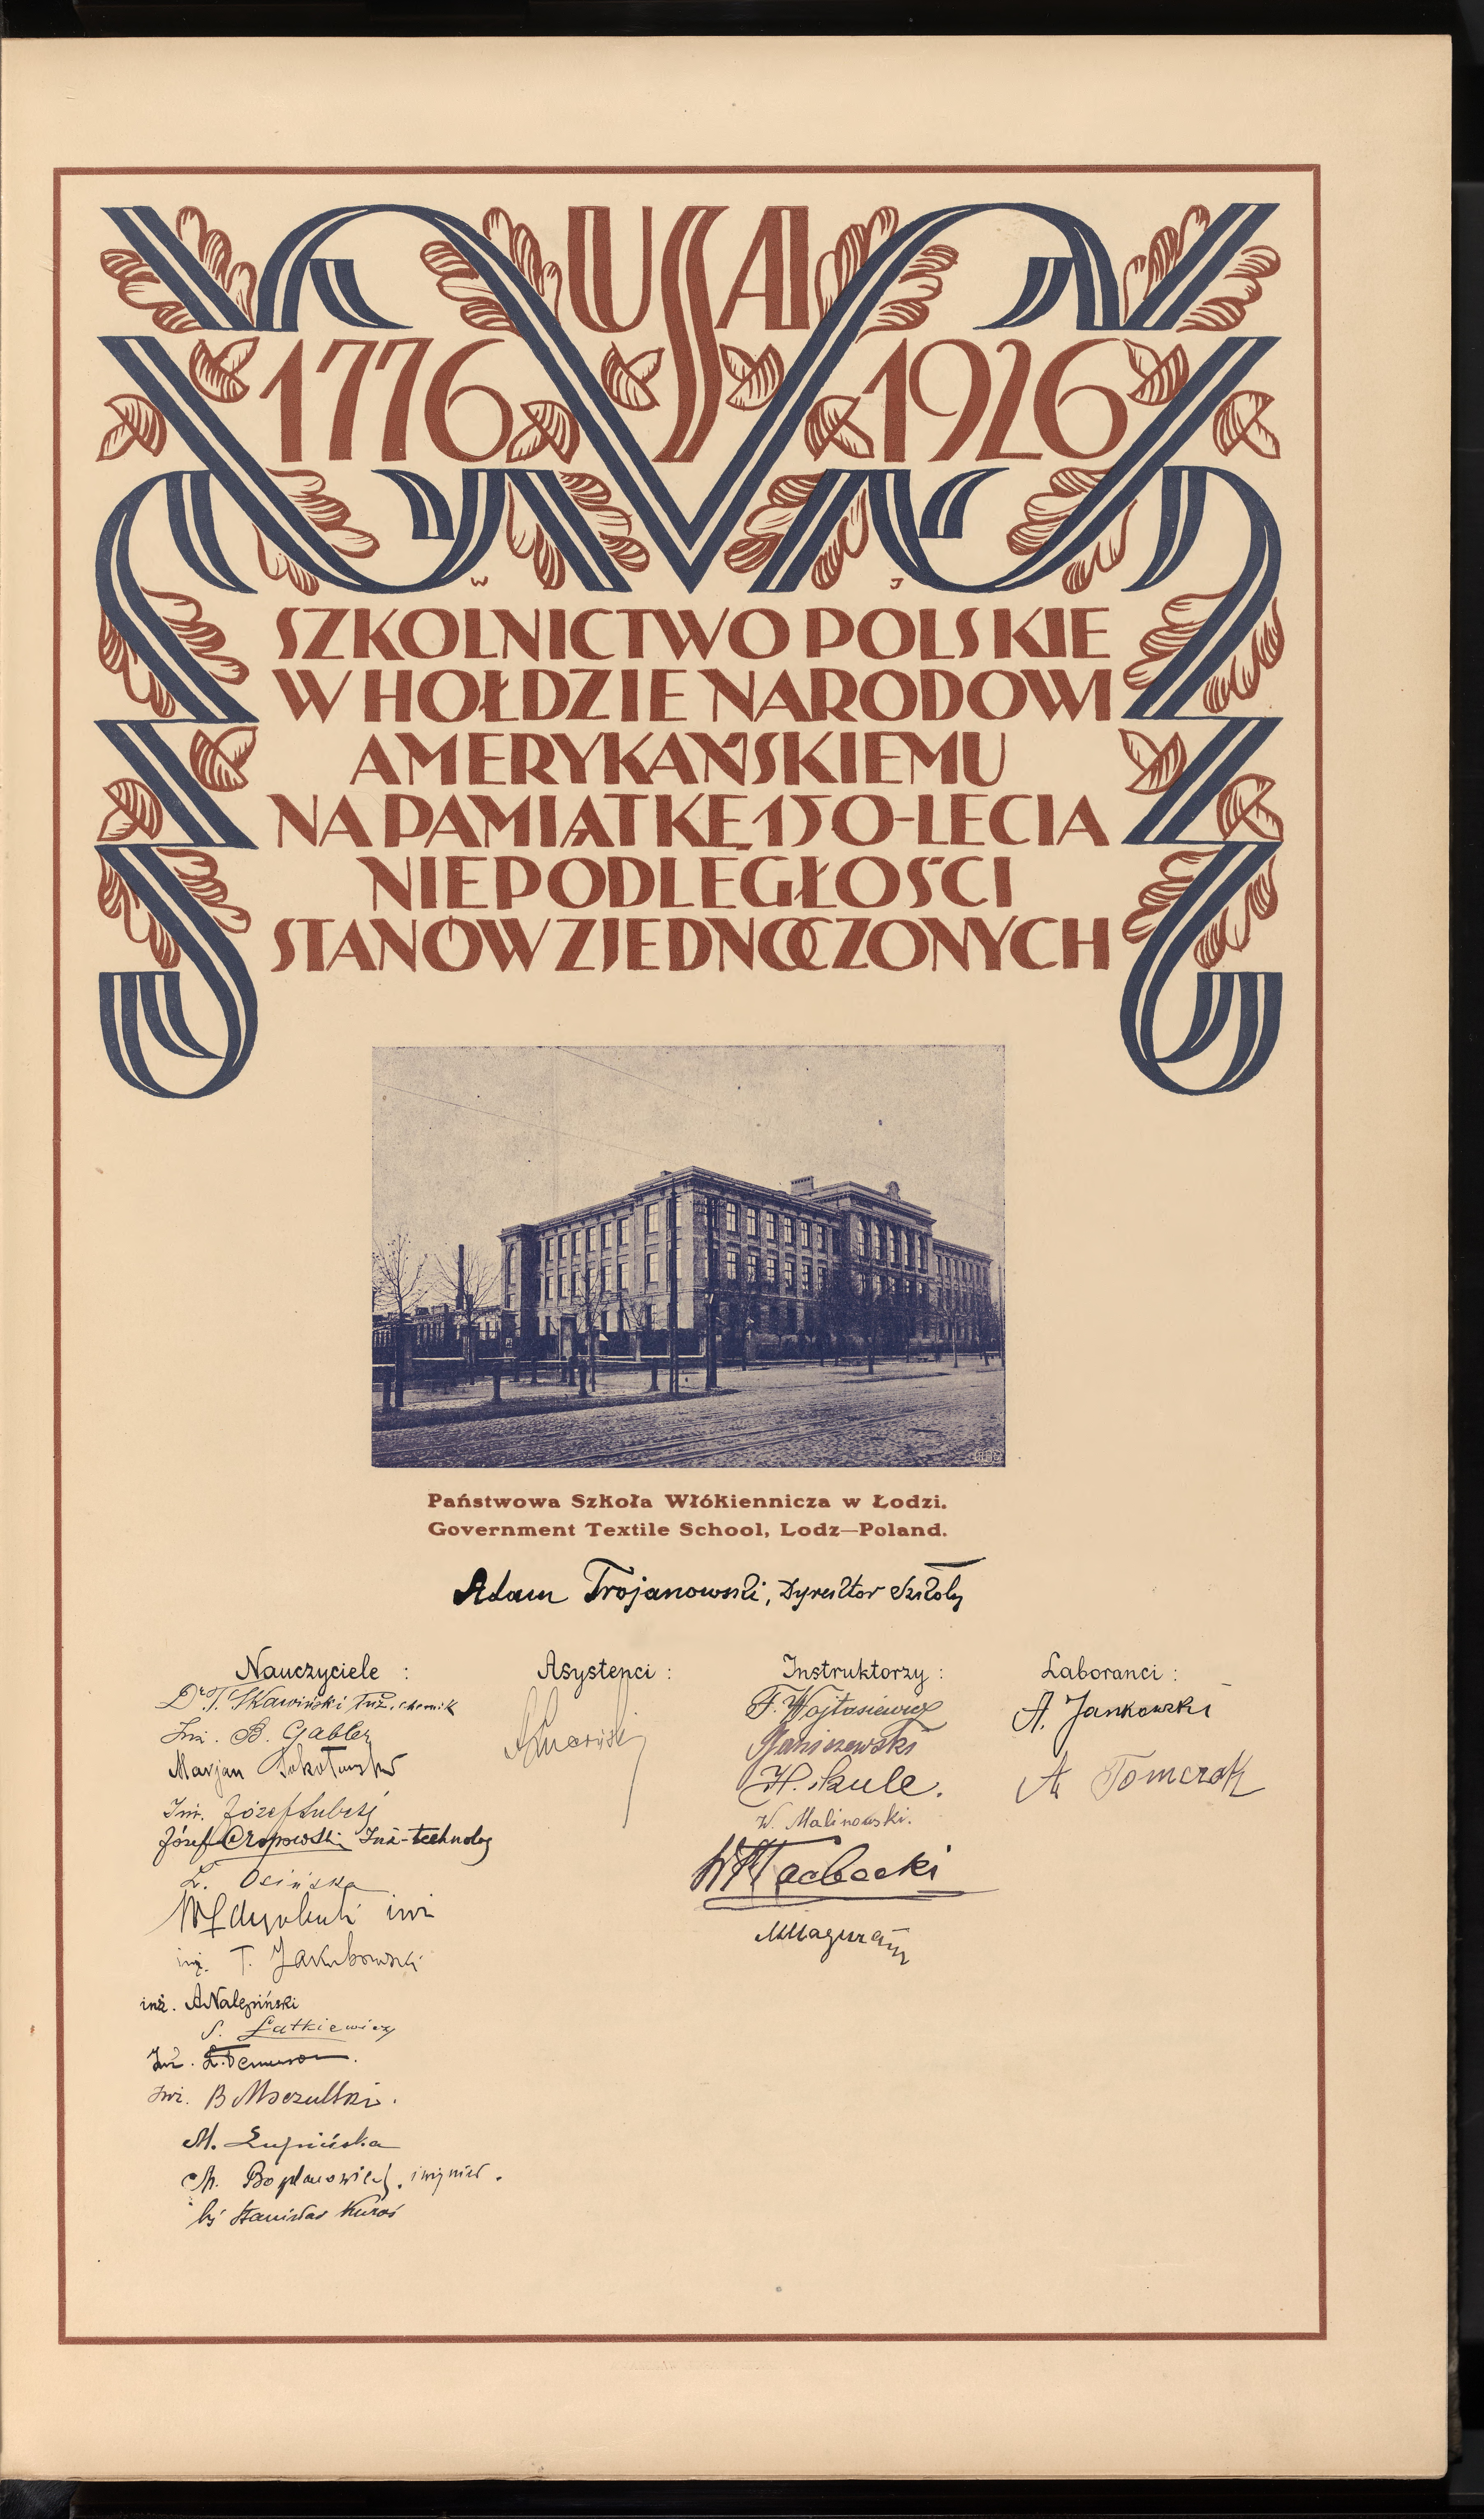 USA
1776 1926
W J
SZKOLNICTWO POLSKIE
W HOŁDZIE NARODOWI
AMERYKAŃSKIEMU
NA PAMIĄTKĘ 150-LECIA
NIEPODLEGŁOŚCI
STANÓW ZJEDNOCZONYCH
Państwowa Szkoła Włókiennicza w Łodzi.
Government Textile School, Lodz—Poland.
Adam Trojanowski, Dyrektor Szkoły
Nauczyciele :
Dr T. Skawiński inż. chemik
Inż. B. Gabler
Marjan Sokołowski
Inż. Józef
Józef Czopowski Inż-technolog
Ł. Osińska
inż
inż. T. Jakubowski
inż. A Nalepiński
S. Łatkiewicz
Inż.
Inż. B Moczulski.
M. Łupińska
M. Bogdanowicz, inżynier.
ks Stanisław Kuraś
Asystenci :
Instruktorzy :
F. Wojtasiewicz
Janiszewski
H. Skule.
W. Malinowski.
Laboranci :
A. Jankowski
A Tomczak